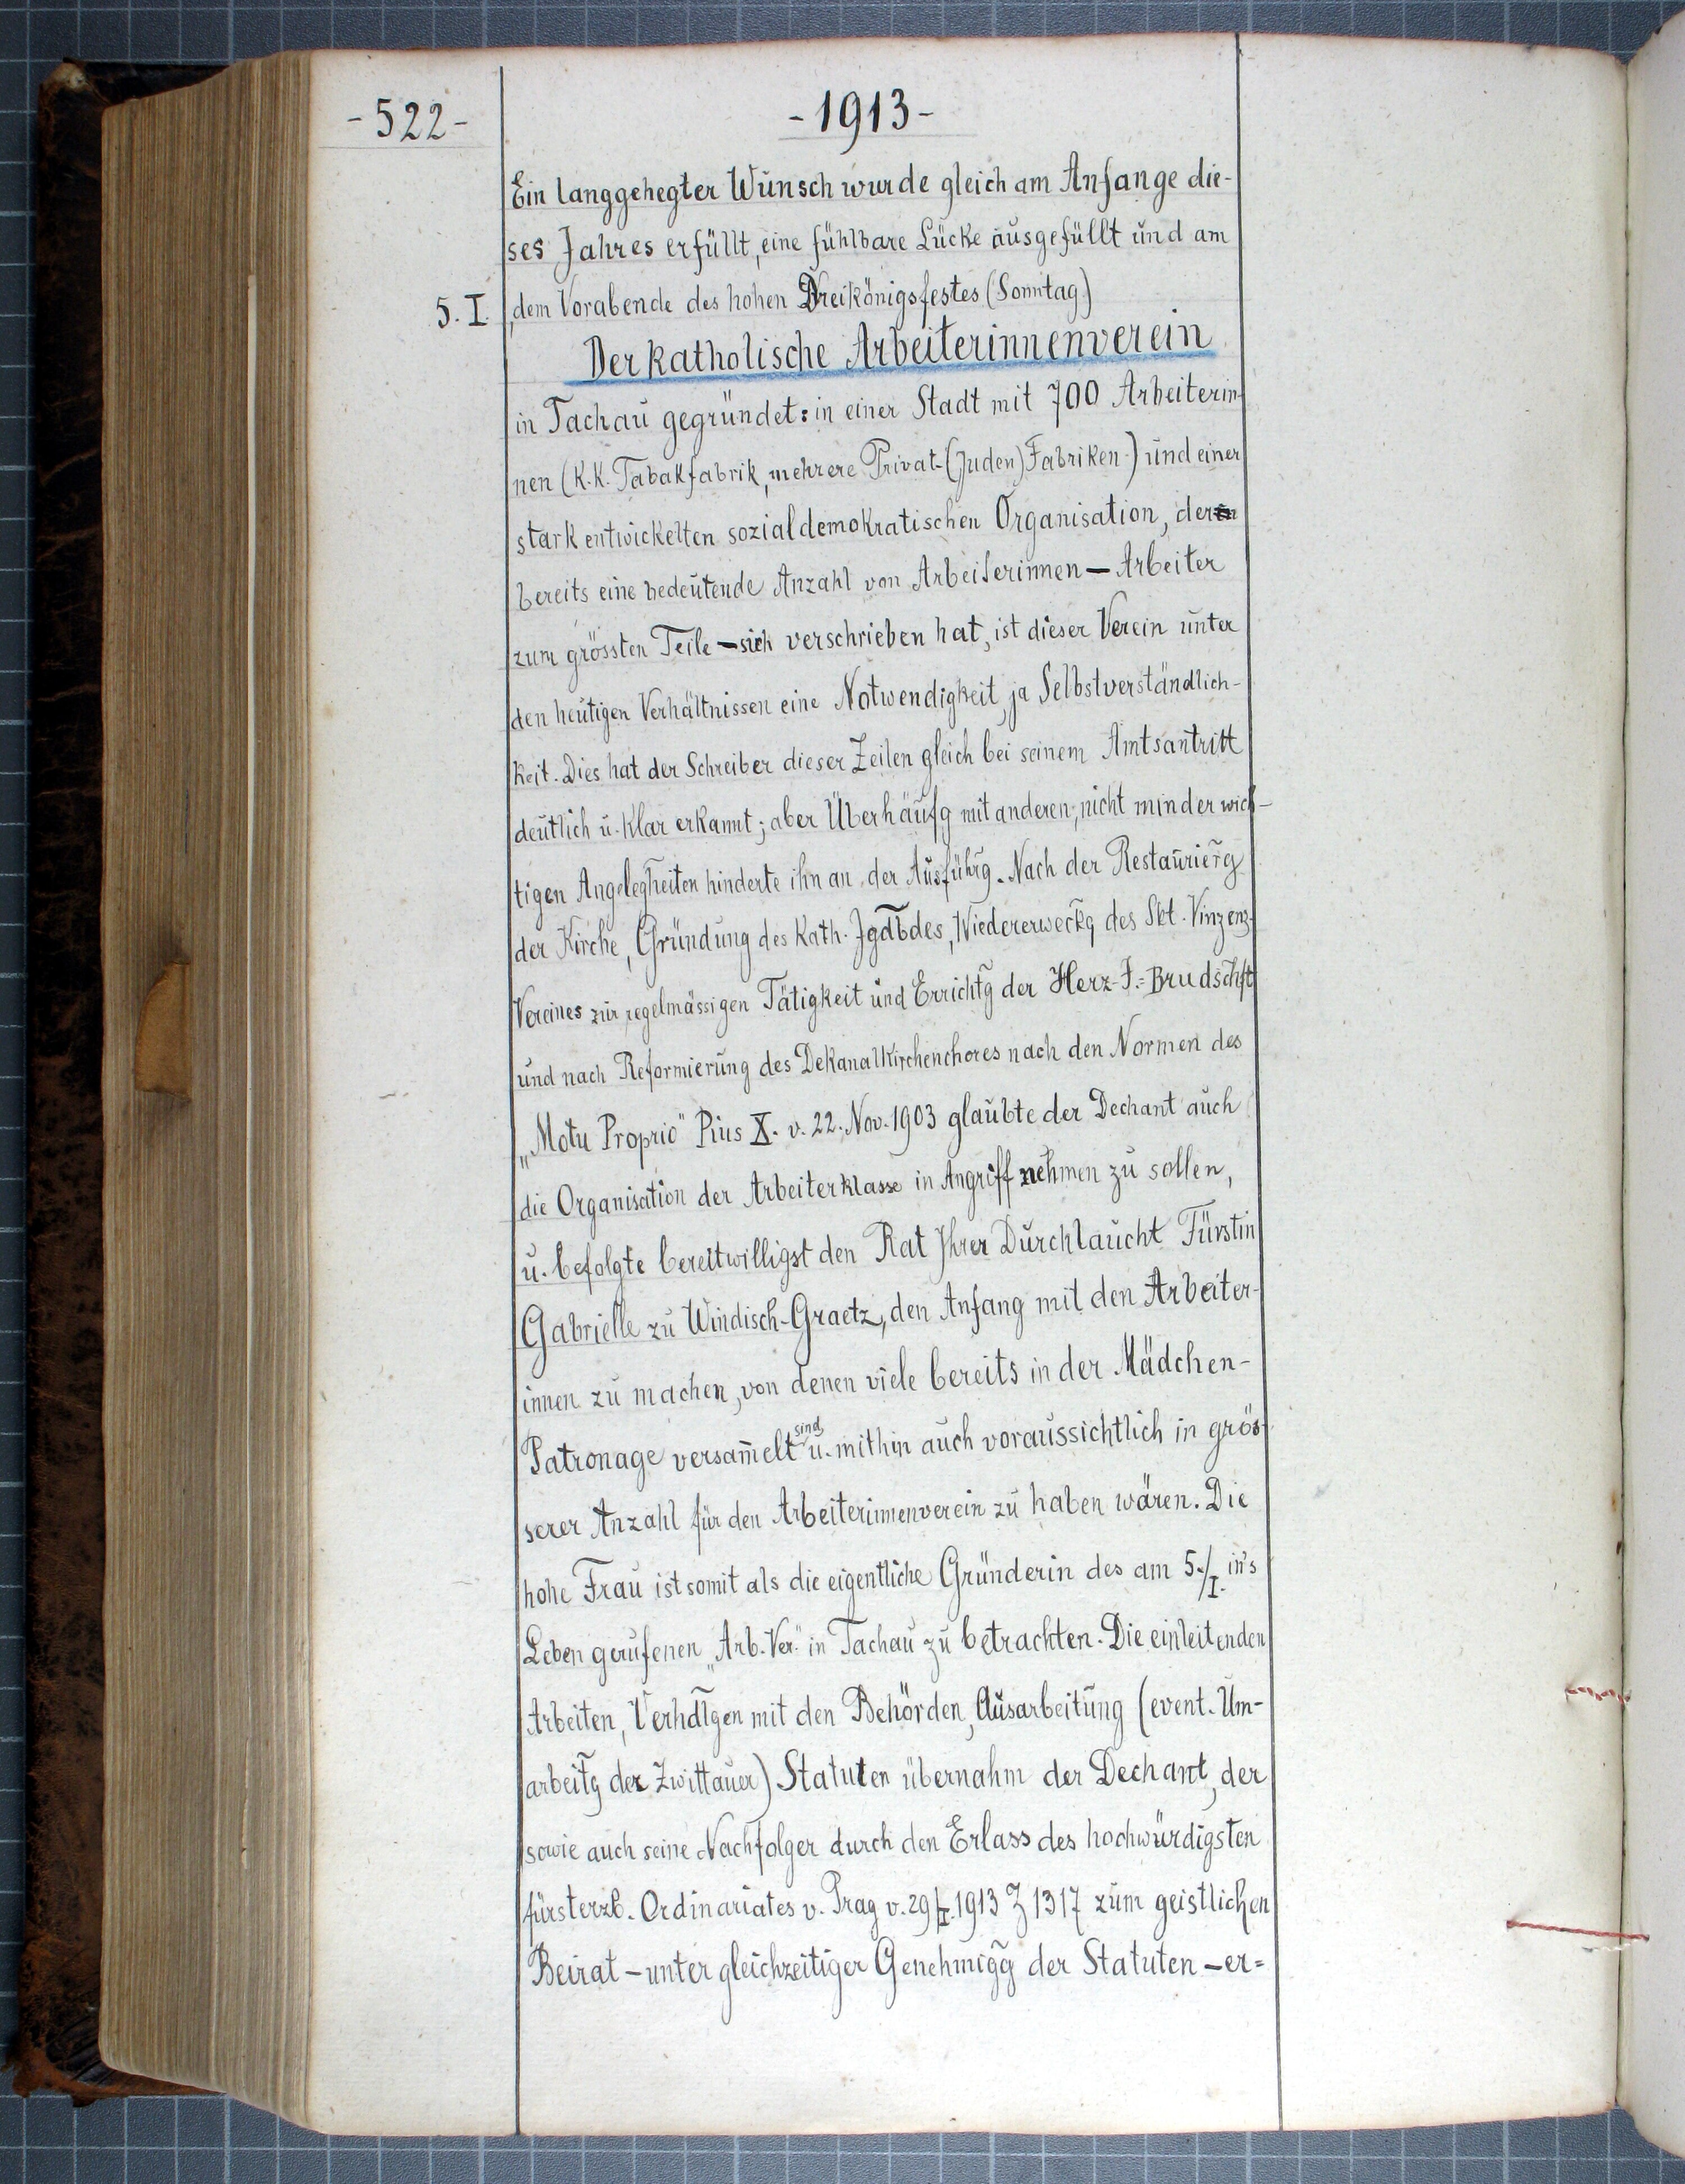 -522-
-1913-
Ein langgehegter Wunsch wurde gleich am Anfange die-
ses Jahres erfüllt, eine fühlbare Lücke ausgefüllt und am
5. I. dem Vorabende des hohen Dreikönigsfestes (Sonntag)
Der katholische Arbeiterinnenverein
in Tachau gegründet: in einer Stadt mit 700 Arbeiterin-
nen (K.K. Tabakfabrik, mehrere Privat-(Juden)Fabriken) und einer
stark entwickelten sozialdemokratischen Organisation, der
bereits eine bedeutende Anzahl von Arbeiterinnen – Arbeiter
zum grössten Teile – sich verschrieben hat, ist dieser Verein unter
den heutigen Verhältnissen eine Notwendigkeit, ja Selbstverständlich-
keit. Dies hat der Schreiber dieser Zeilen gleich bei seinem Amtsantritt
deutlich u. klar erkannt; aber Überhäufg mit anderen, nicht minder wich-
tigen Angelegheiten hinderte ihn an der Ausführg. Nach der Restaurierg
der Kirche, Gründung des Kath. Jgdbdes, Wiedererweckg des Skt. Vinzenz-
Vereines zur regelmässigen Tätigkeit und Errichtg der Herz-J.-Brudschft
und nach Reformierung des Dekanalkirchenchores nach den Normen des
„Motu Proprio" Pius X. v. 22. Nov. 1903 glaubte der Dechant auch
die Organisation der Arbeiterklasse in Angriff nehmen zu sollen,
u. befolgte bereitwilligst den Rat Ihrer Durchlaucht Fürstin
Gabrielle zu Windisch-Graetz, den Anfang mit den Arbeiter-
innen zu machen, von denen viele bereits in der Mädchen-
Patronage versam̄elt sind u. mithin auch voraussichtlich in grös-
serer Anzahl für den Arbeiterinnenverein zu haben wären. Die
hohe Frau ist somit als die eigentliche Gründerin des am 5./I. in's
Leben gerufenen „Arb. Ver." in Tachau zu betrachten. Die einleitenden
Arbeiten, Verhdlgen mit den Behörden, Ausarbeitung (event. Um-
arbeitg der Zwittauer) Statuten übernahm der Dechant, der
sowie auch seine Nachfolger durch den Erlass des hochwürdigsten
fürsterzb. Ordinariates v. Prag v. 29/I. 1913 Z 1317 zum geistlichen
Beirat – unter gleichzeitiger Genehmigg der Statuten – er=